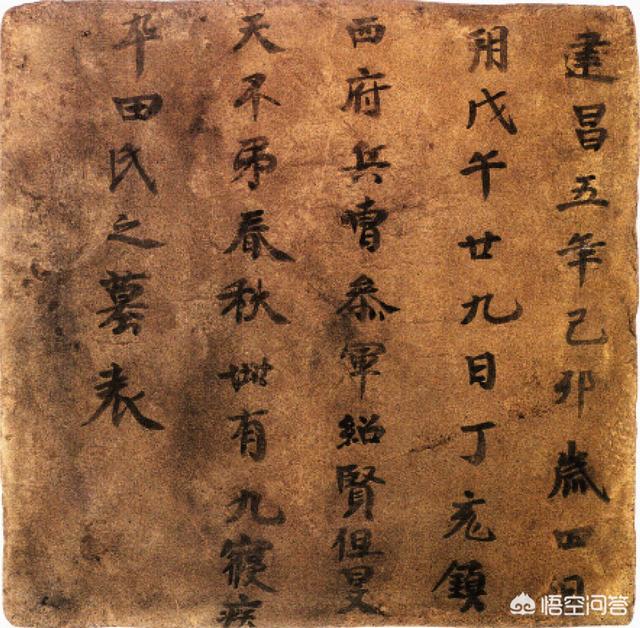 建昌五年己卯歲四月
朔戊午廿九日丁亥鎮
西府兵曹叅軍紹賢但旻
天不弔春秋卌有九寢疾
卒田氏之墓表
悟空问答